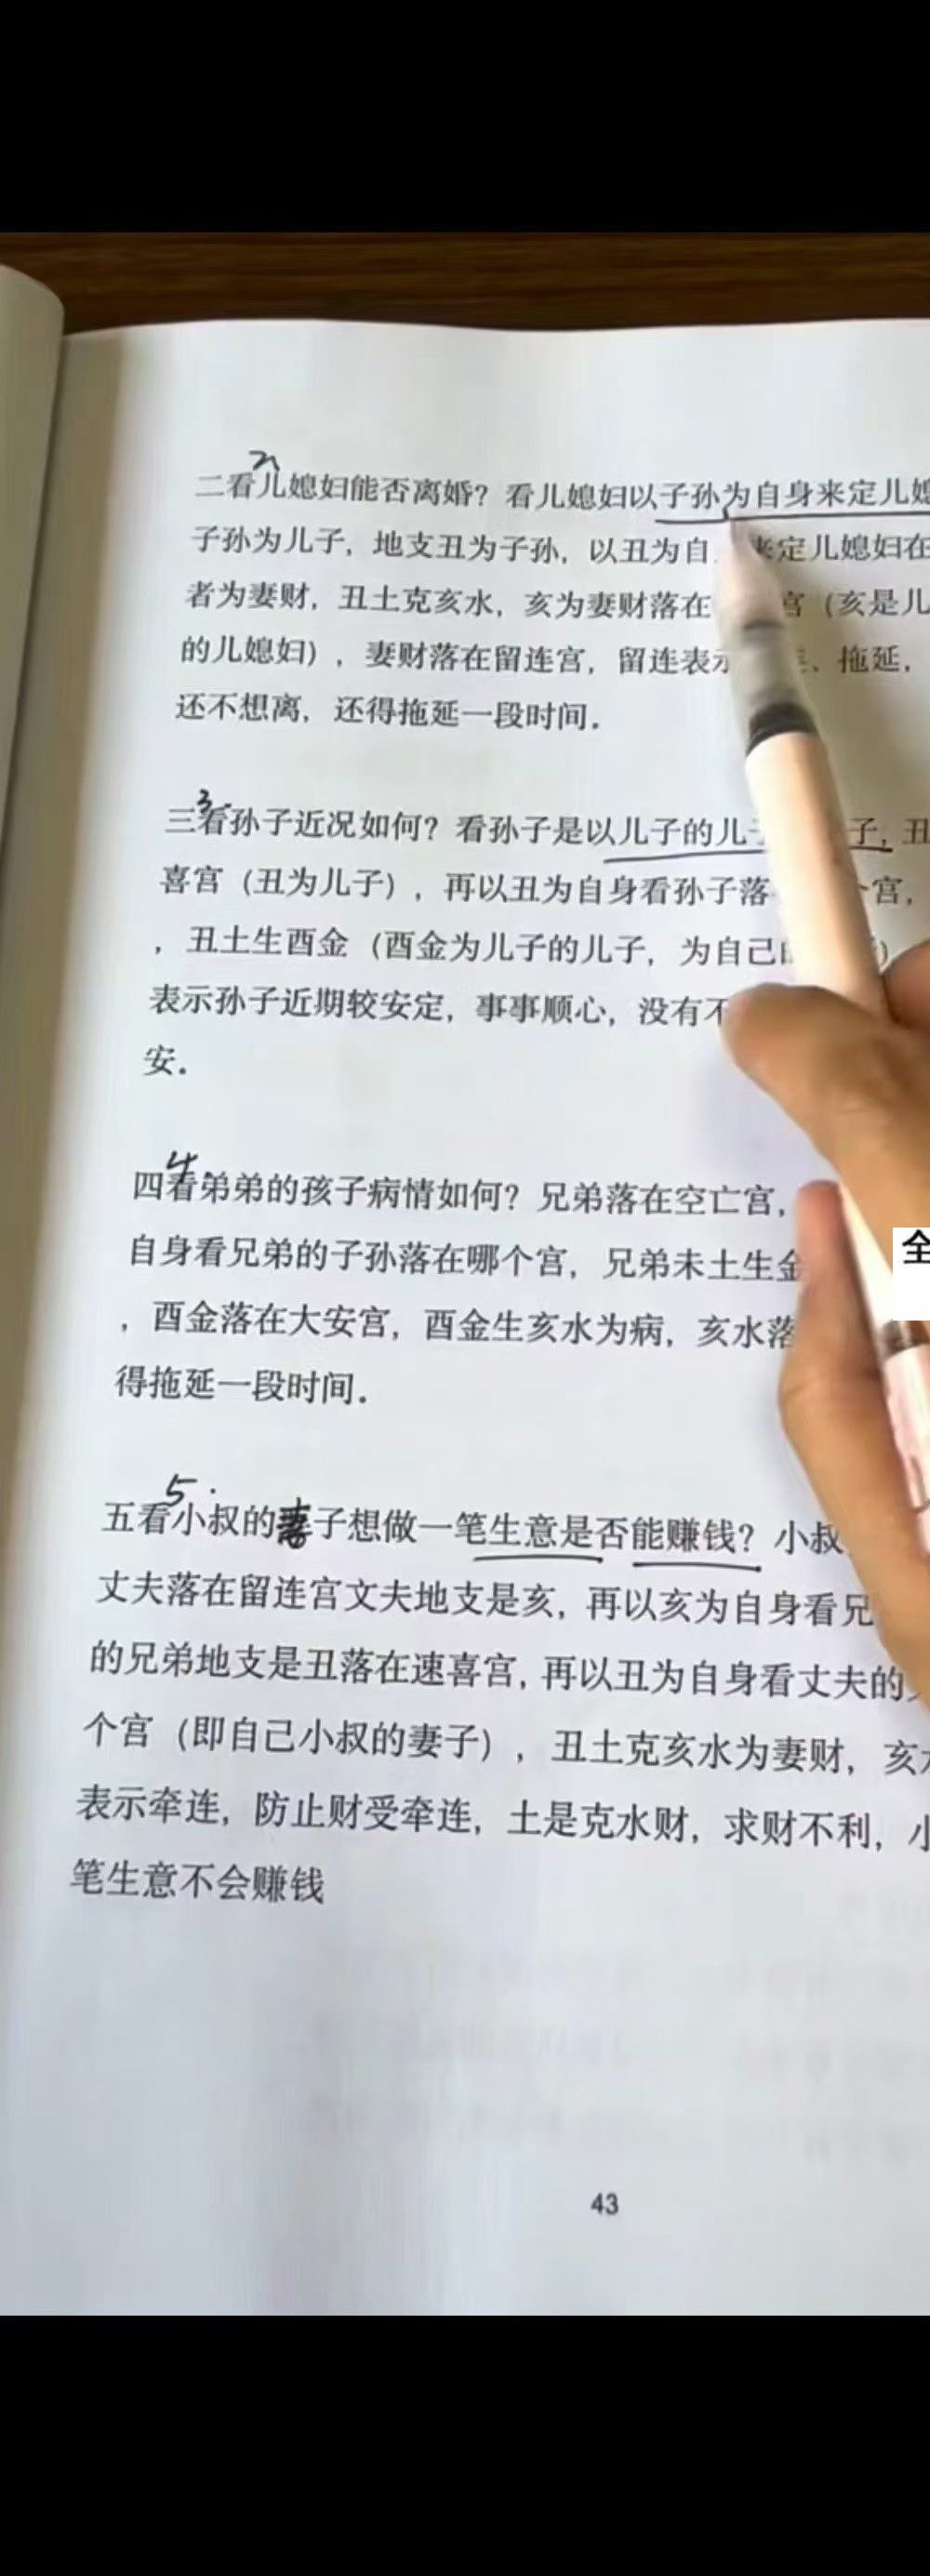 2
二看儿媳妇能否离婚？看儿媳妇以子孙为自身来定儿媳
子孙为儿子，地支丑为子孙，以丑为自 来定儿媳妇在
者为妻财，丑土克亥水，亥为妻财落在 宫（亥是儿
的儿媳妇），妻财落在留连宫，留连表示 、拖延，
还不想离，还得拖延一段时间.
3.
三看孙子近况如何？看孙子是以儿子的儿 子，丑
喜宫（丑为儿子），再以丑为自身看孙子落 个宫，
，丑土生酉金（酉金为儿子的儿子，为自己 ）
表示孙子近期较安定，事事顺心，没有不
安.
4.
四看弟弟的孩子病情如何？兄弟落在空亡宫，
自身看兄弟的子孙落在哪个宫，兄弟未土生金
，酉金落在大安宫，酉金生亥水为病，亥水落
得拖延一段时间.
5.
五看小叔的妻子想做一笔生意是否能赚钱？小叔
丈夫落在留连宫文夫地支是亥，再以亥为自身看兄
的兄弟地支是丑落在速喜宫，再以丑为自身看丈夫的
个宫（即自己小叔的妻子），丑土克亥水为妻财，亥水
表示牵连，防止财受牵连，土是克水财，求财不利，小
笔生意不会赚钱
全
43